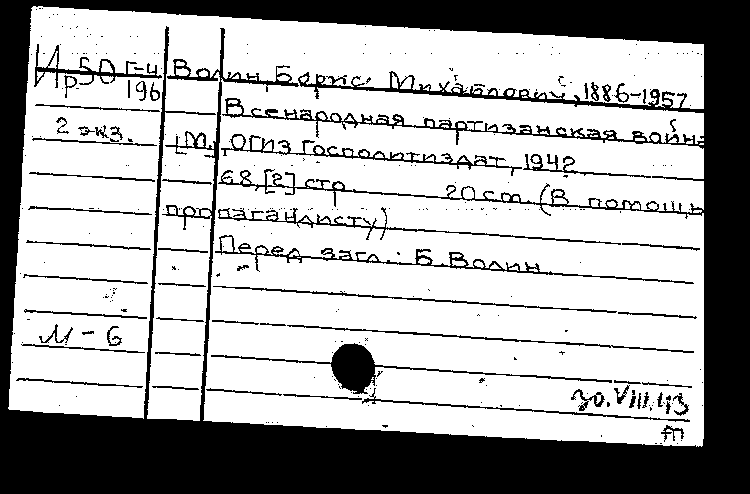 Ир50 Г-4 Волин, Борис Михайлович, 1886-1957
196
Всенародная партизанская война
2 экз. [М.], ОГИЗ Госполитиздат, 1942
68,[2] стр. 20 см. (В помощь
пропагандисту)
Перед загл.: Б. Волин
М-6
30.VIII.43